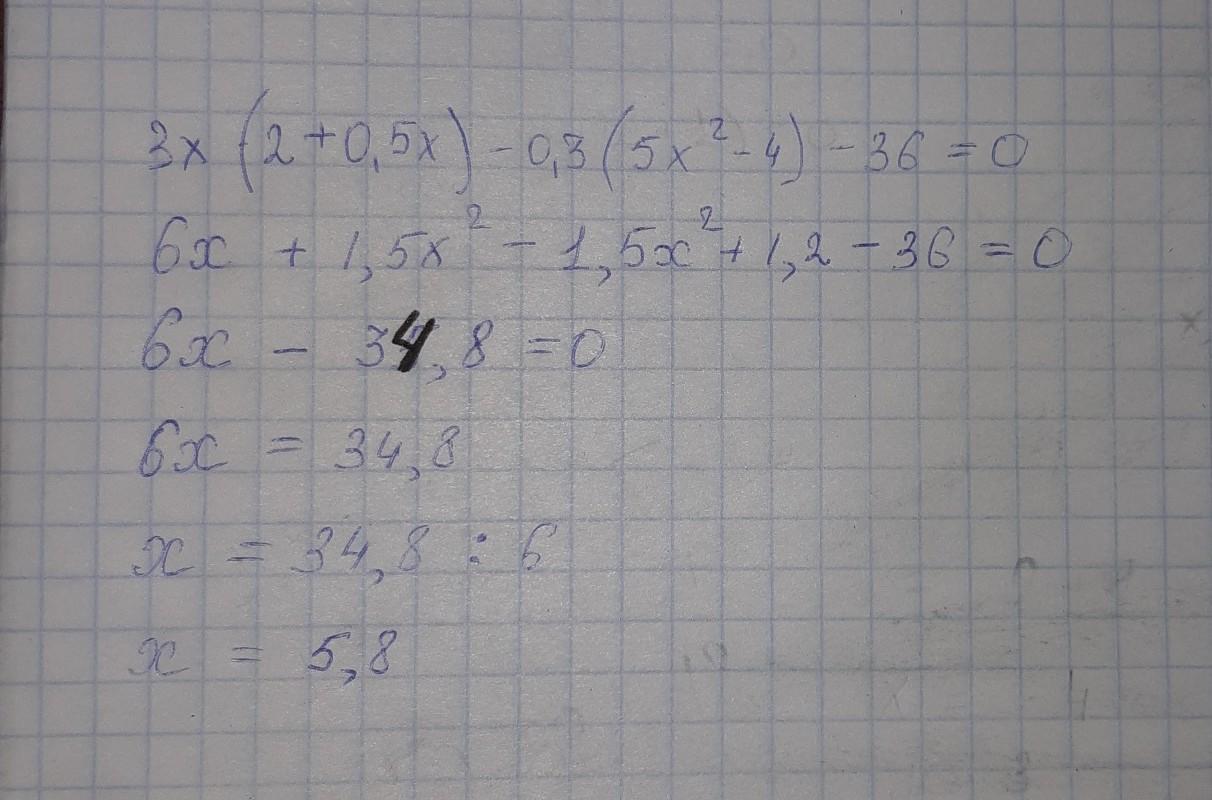 3x (2+0,5x) - 0,3 (5x² - 4) - 36 = 0
6x + 1,5x² - 1,5x² + 1,2 - 36 = 0
6x - 34,8 = 0
6x = 34,8
x = 34,8 : 6
x = 5,8